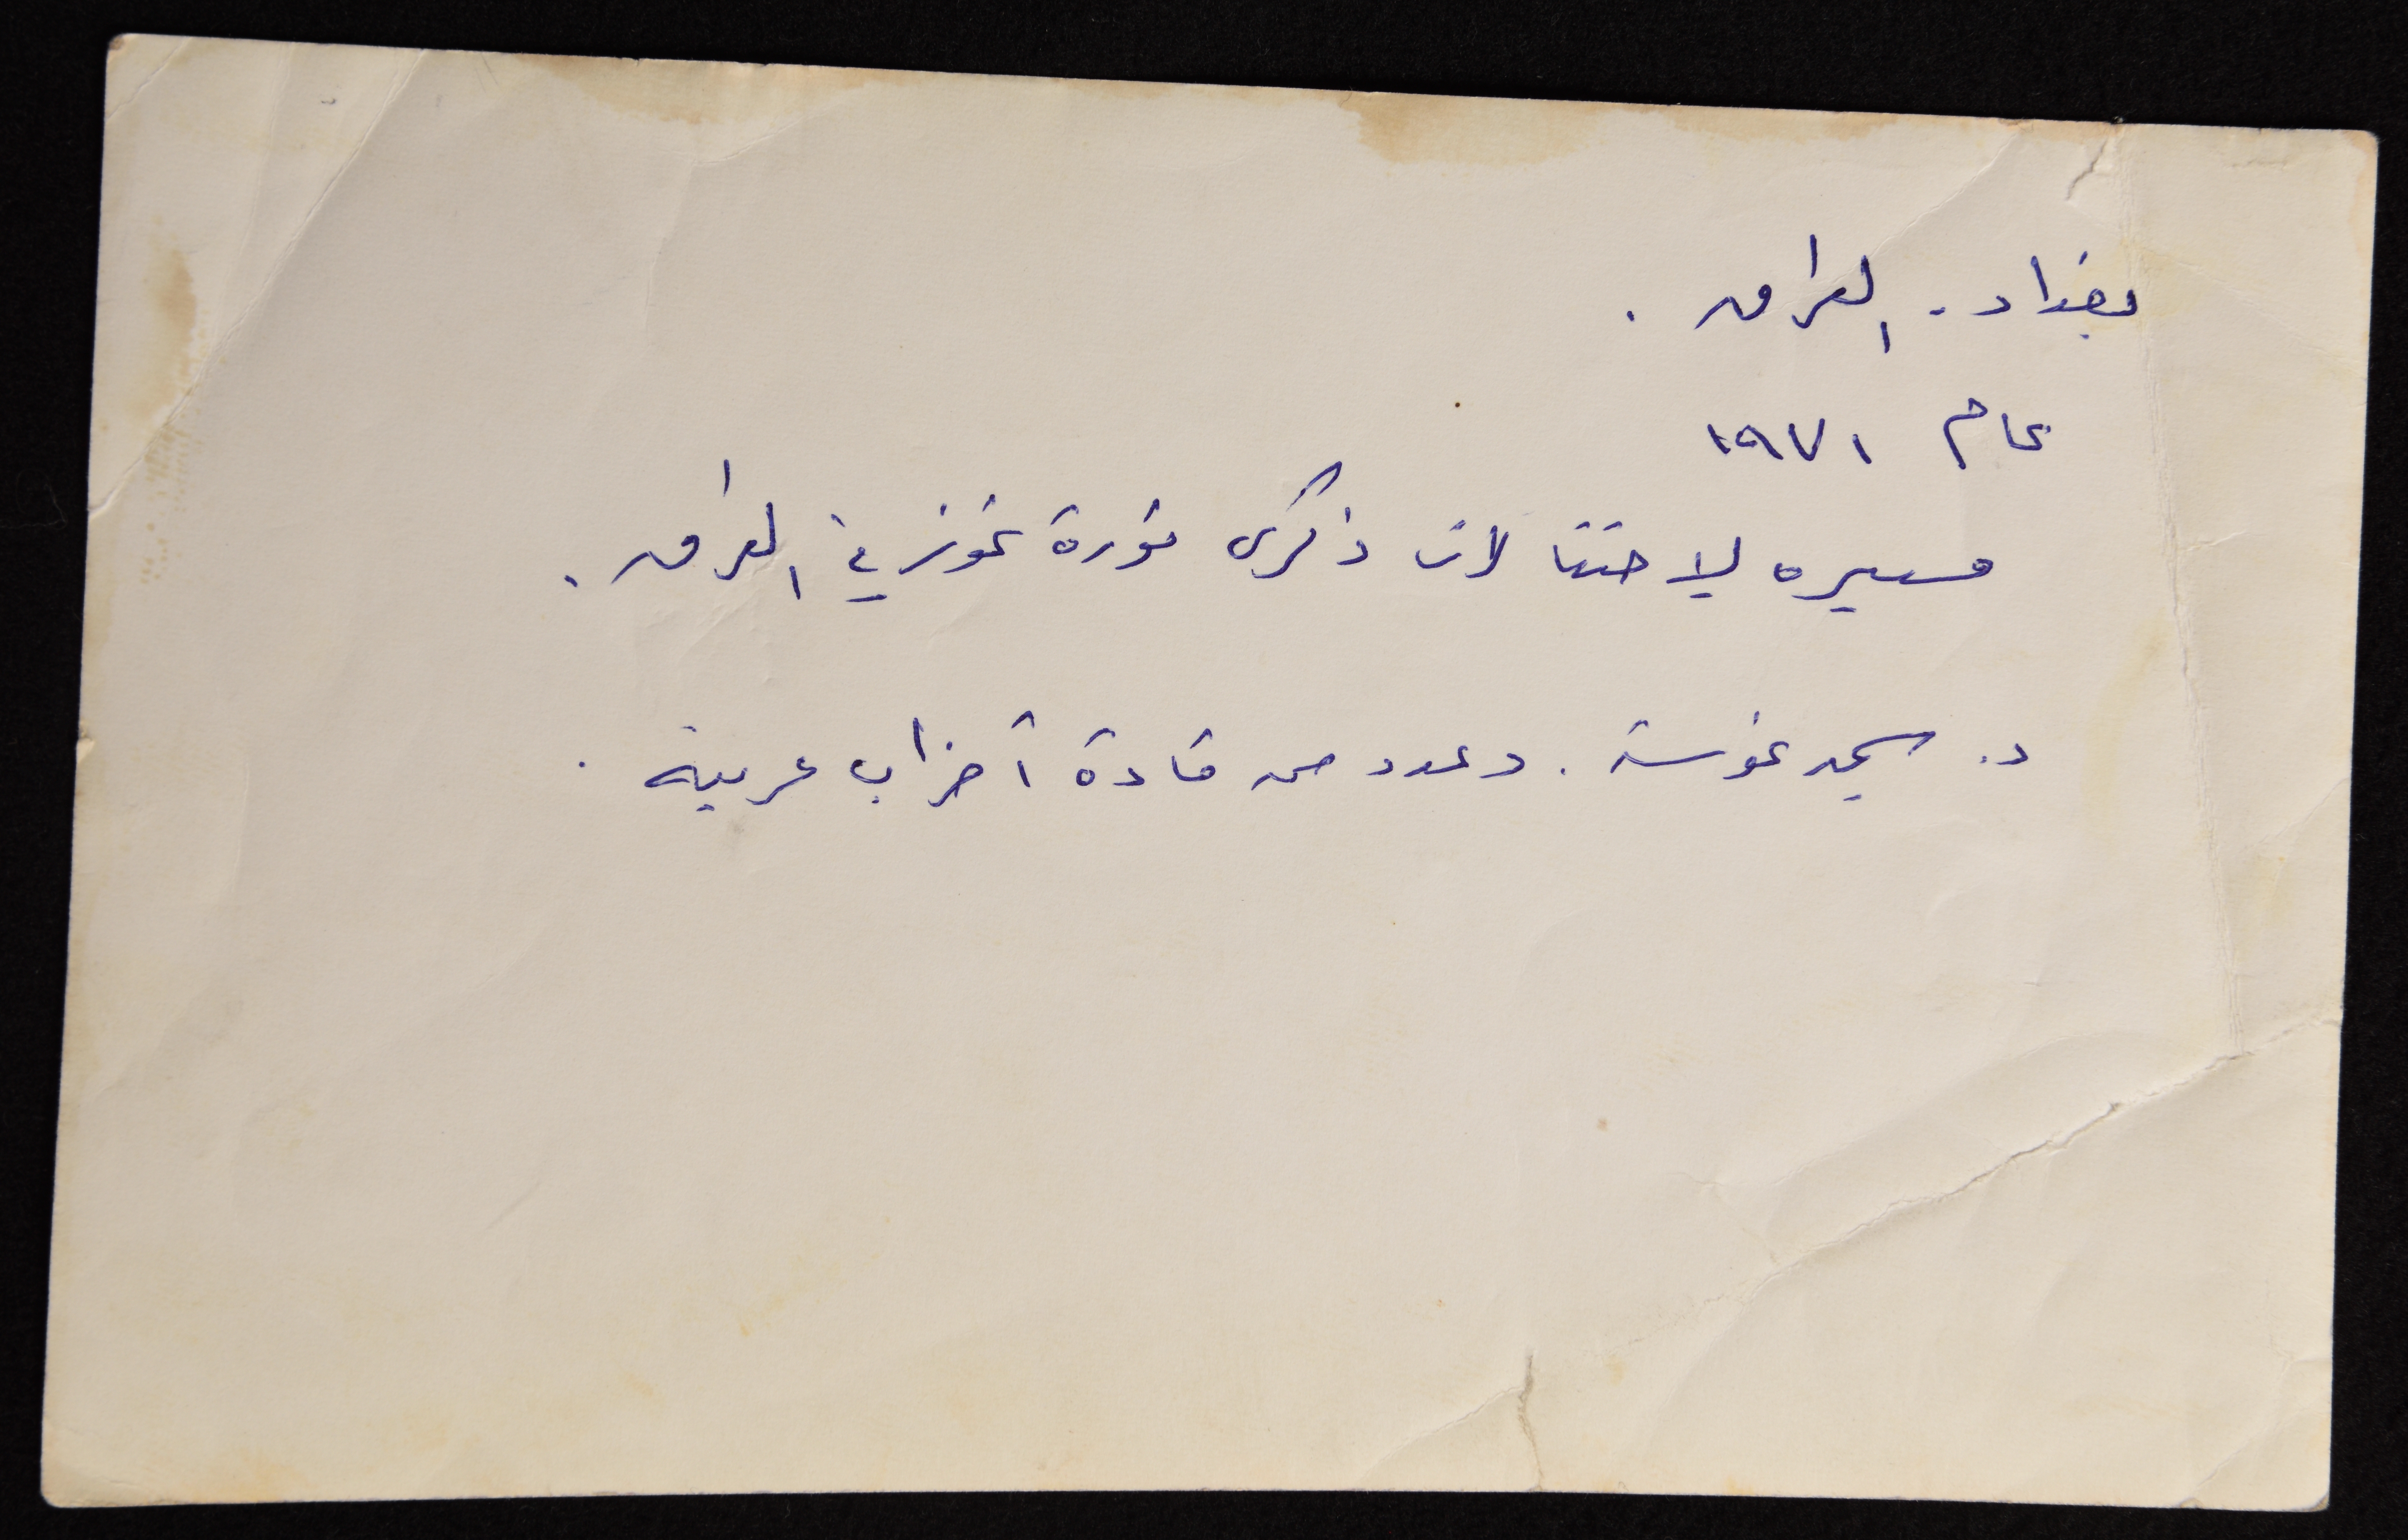 بغداد - العراق .
عام ١٩٧١
مسيره لاحتفالات ذكرى ثورة تموز في العراق .
د. سمير غوشة . وعدد من قادة أحزاب عربية .